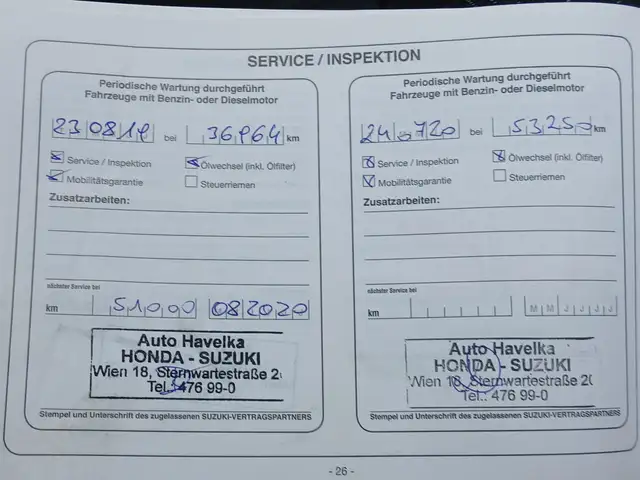 SERVICE / INSPEKTION
Periodische Wartung durchgeführt
Fahrzeuge mit Benzin- oder Dieselmotor
230819 bei 36964 km
Service / Inspektion Ölwechsel (inkl. Ölfilter)
Mobilitätsgarantie Steuerriemen
Zusatzarbeiten:
nächster Service bei
km 51000 082020
Auto Havelka
HONDA - SUZUKI
Wien 18, Sternwartestraße 2
Tel.: 476 99-0
Stempel und Unterschrift des zugelassenen SUZUKI-VERTRAGSPARTNERS
Periodische Wartung durchgeführt
Fahrzeuge mit Benzin- oder Dieselmotor
bei 53250 km
Service / Inspektion Ölwechsel (inkl. Ölfilter)
Mobilitätsgarantie Steuerriemen
Zusatzarbeiten:
nächster Service bei
km M M J J J J
Auto Havelka
HONDA - SUZUKI
Wien 18, Sternwartestraße 2
Tel.: 476 99-0
Stempel und Unterschrift des zugelassenen SUZUKI-VERTRAGSPARTNERS
- 26 -